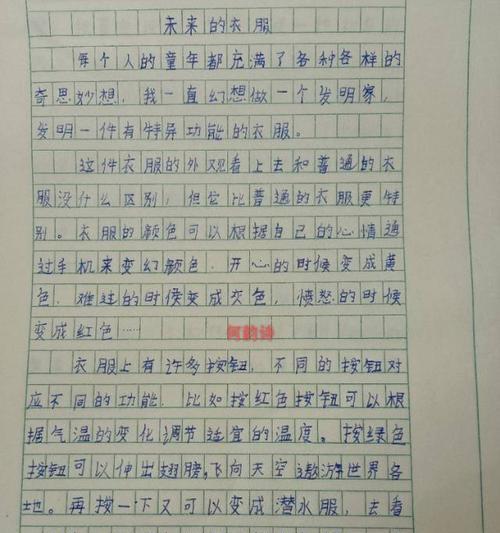 未来的衣服
每个人的童年都充满了各种各样的
奇思妙想，我一直幻想做一个发明家，
发明一件有特异功能的衣服。
这件衣服的外观看上去和普通的衣
服没什么区别，但它比普通的衣服更特
别。衣服的颜色可以根据自己的心情通
过手机来变幻颜色．开心的时候变成黄
色．难过的时候变成灰色，愤怒的时候
变成红色……
何韵诗
衣服上有许多按钮，不同的按钮对
应不同的功能．比如按红色按钮可以根
据气温的变化调节适宜的温度。按绿色
按钮可以伸出翅膀，飞向天空遨游世界各
地。再按一下又可以变成潜水服，去看